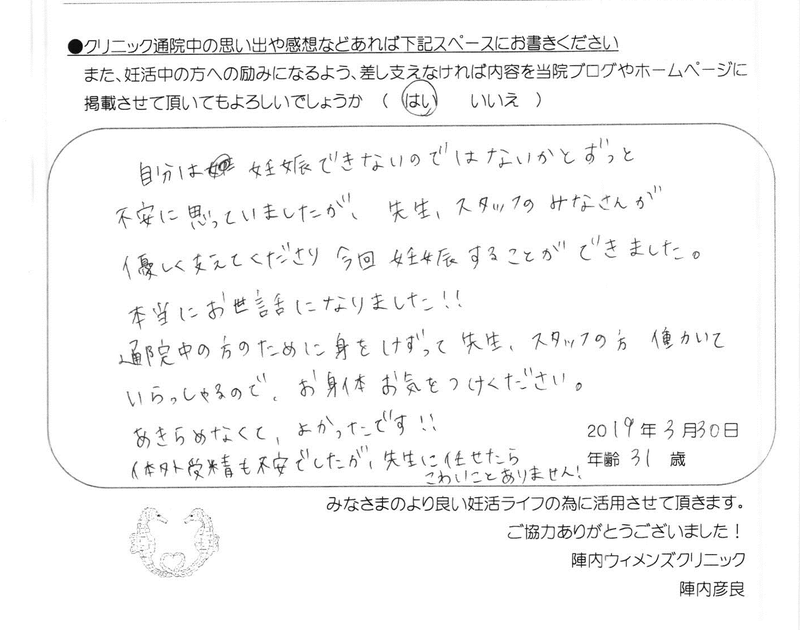 ●クリニック通院中の思い出や感想などあれば下記スペースにお書きください
また、妊活中の方への励みになるよう、差し支えなければ内容を当院ブログやホームページに
掲載させて頂いてもよろしいでしょうか （ はい いいえ ）
自分は 妊娠できないのではないかとずっと
不安に思っていましたが、先生、スタッフのみなさんが
優しく支えてくださり今回妊娠することができました。
本当にお世話になりました!!
通院中の方のために身をけずって先生、スタッフの方 働かいて
いらっしゃるので、お身体お気をつけください。
あきらめなくて、よかったです!!
体外受精も不安でしたが、先生に任せたら
こわいことありません!
2019年3月30日
年齢 31 歳
みなさまのより良い妊活ライフの為に活用させて頂きます。
ご協力ありがとうございました！
陣内ウィメンズクリニック
陣内彦良